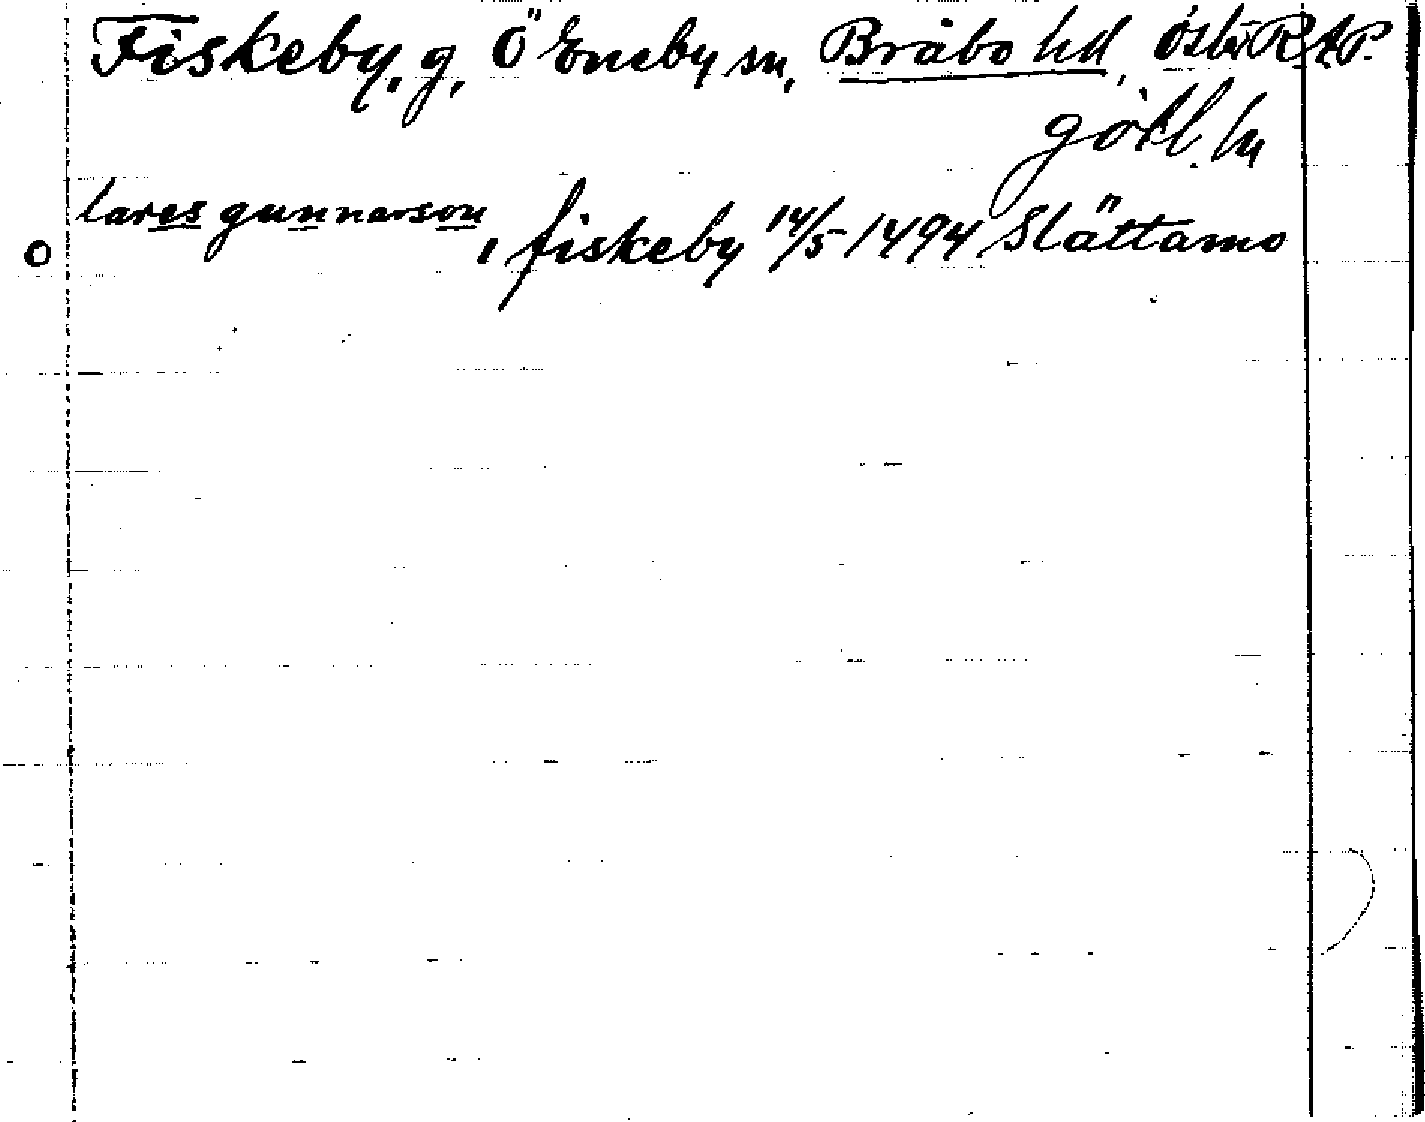 Fiskeby, g, Ö Eneby sn, Bråbo hd, Öster RAP.
götl. ln
lares gunnarson, fiskeby 14/5 1494 Slättamo
O